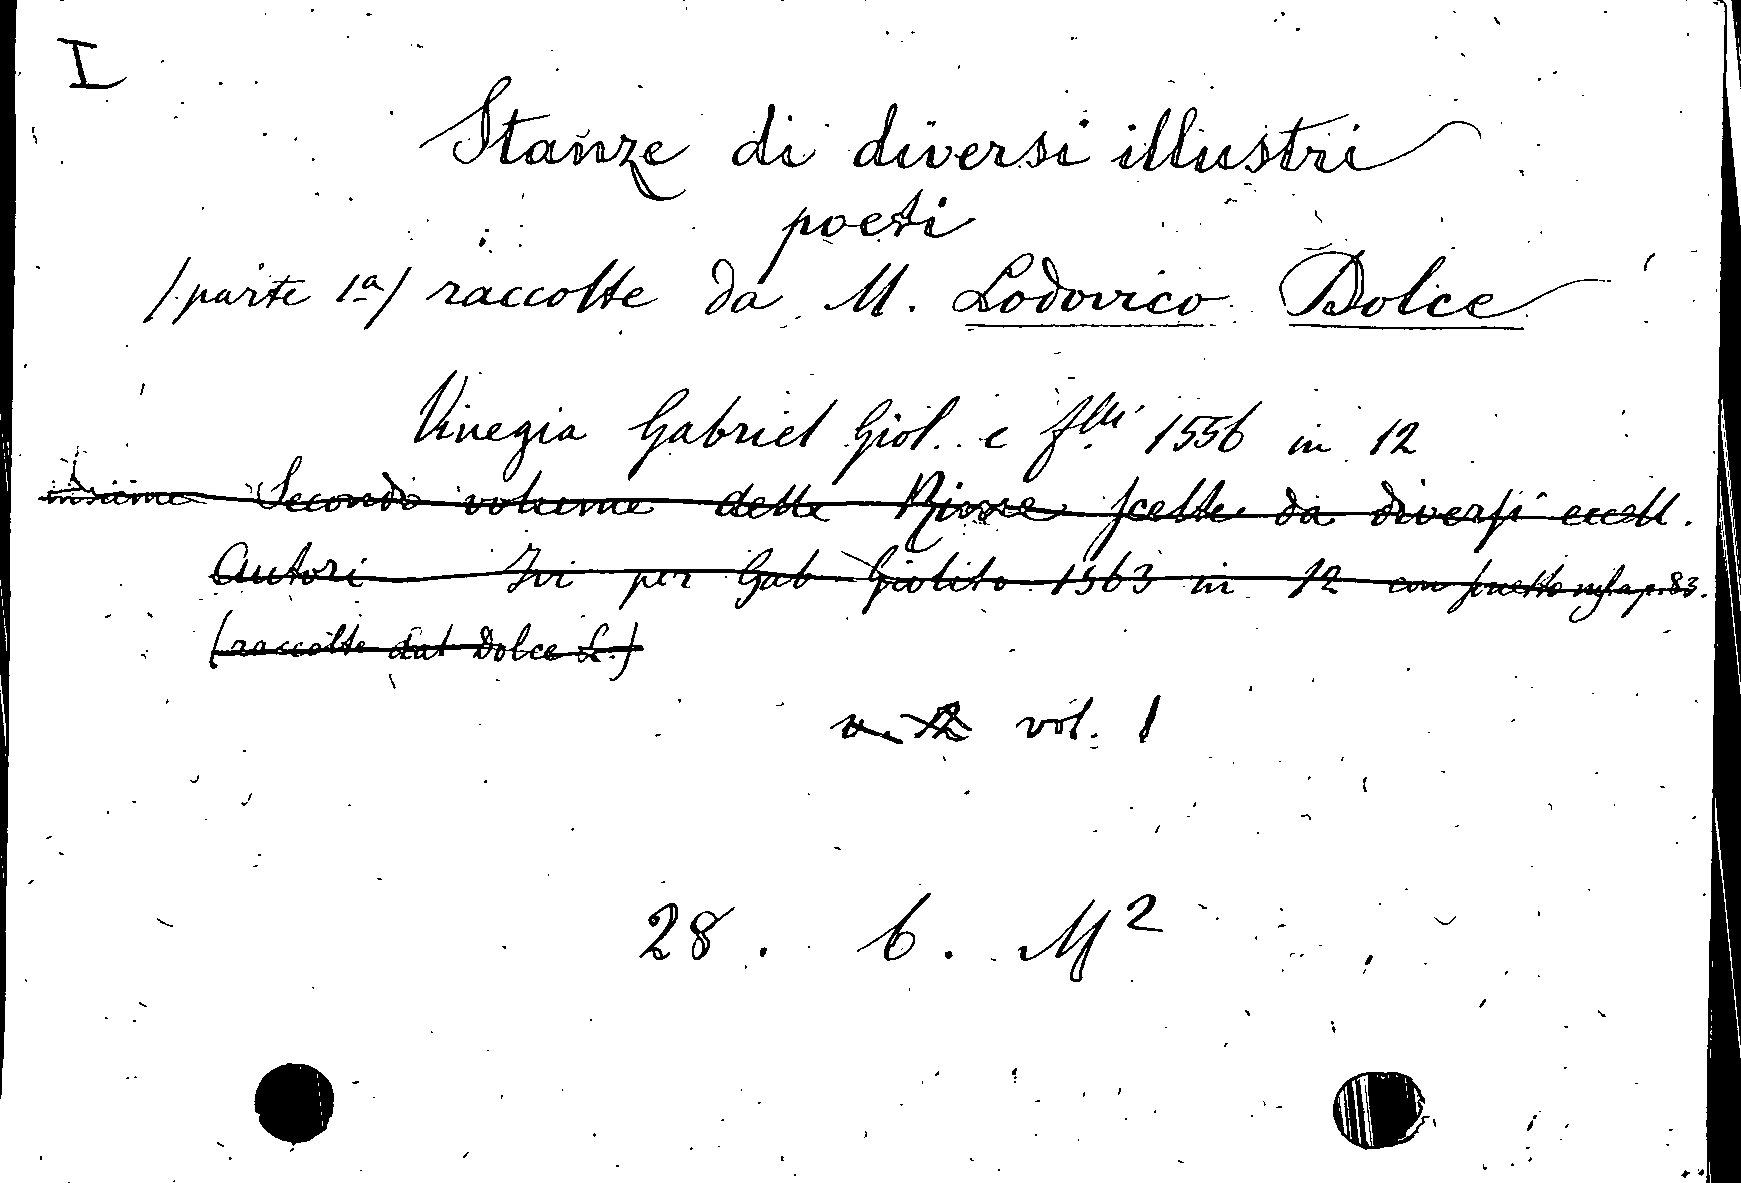 I
Stanze di diversi illustri
poeti
/parte 1a/ raccolte da M. Lodovico Dolce
Vinegia Gabriel Giol. e flli 1556 in 12
insieme Secondo volume delle Rime scelte da diversi eccell.
Autori Ivi per Gab Giolito 1563 in 12 con p. 83.
(raccolte dal Dolce L.)
vol. 1
28. 6. M2